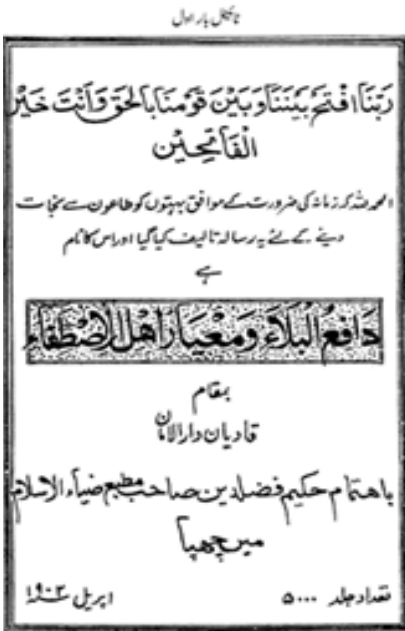 ٹائیٹل بار اول
رَبَّنَا افْتَحْ بَيْنَنَا وَبَيْنَ قَوْمِنَا بِالْحَقِّ وَأَنْتَ خَيْرُ
الْفَاتِحِيْنَ
الحمدللہ کہ زمانہ کی ضرورت کے موافق بہتوں کو طاعون سے نجات
دینے کے لئے یہ رسالہ تالیف کیا گیا اور اس کا نام
ہے
دَافِعُ الْبَلَاءِ وَمِعْيَارُ اَهْلِ الْاِصْطِفَاءِ
بمقام
قادیان دارالامان
باہتمام حکیم فضلدین صاحب مطبع ضیاء الاسلام
میں چھپا
تعداد جلد ۵۰۰۰
اپریل ۱۹۰۲ء